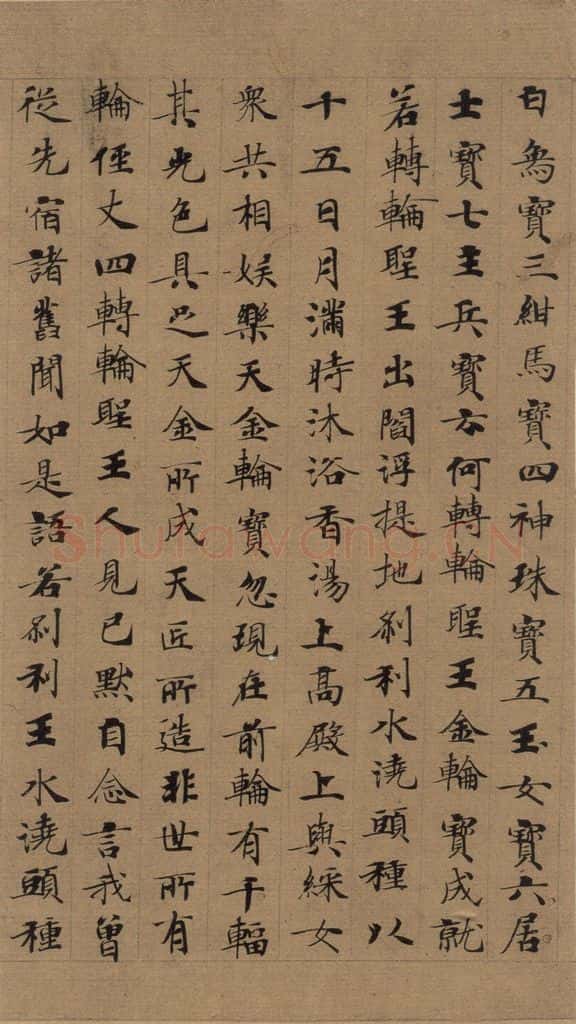 白象寶三紺馬寶四神珠寶五玉女寶六居
士寶七主兵寶云何轉輪聖王金輪寶成就
若轉輪聖王出閻浮提地刹利水澆頭種以
十五日月滿時沐浴香湯上高殿上與綵女
衆共相娛樂天金輪寶忽現在前輪有千輻
其光色具足天金所成天匠所造非世所有
輪徑丈四轉輪聖王人見已默自念言我曾
從先宿諸舊聞如是語若刹利王水澆頭種
Shufawang.CN